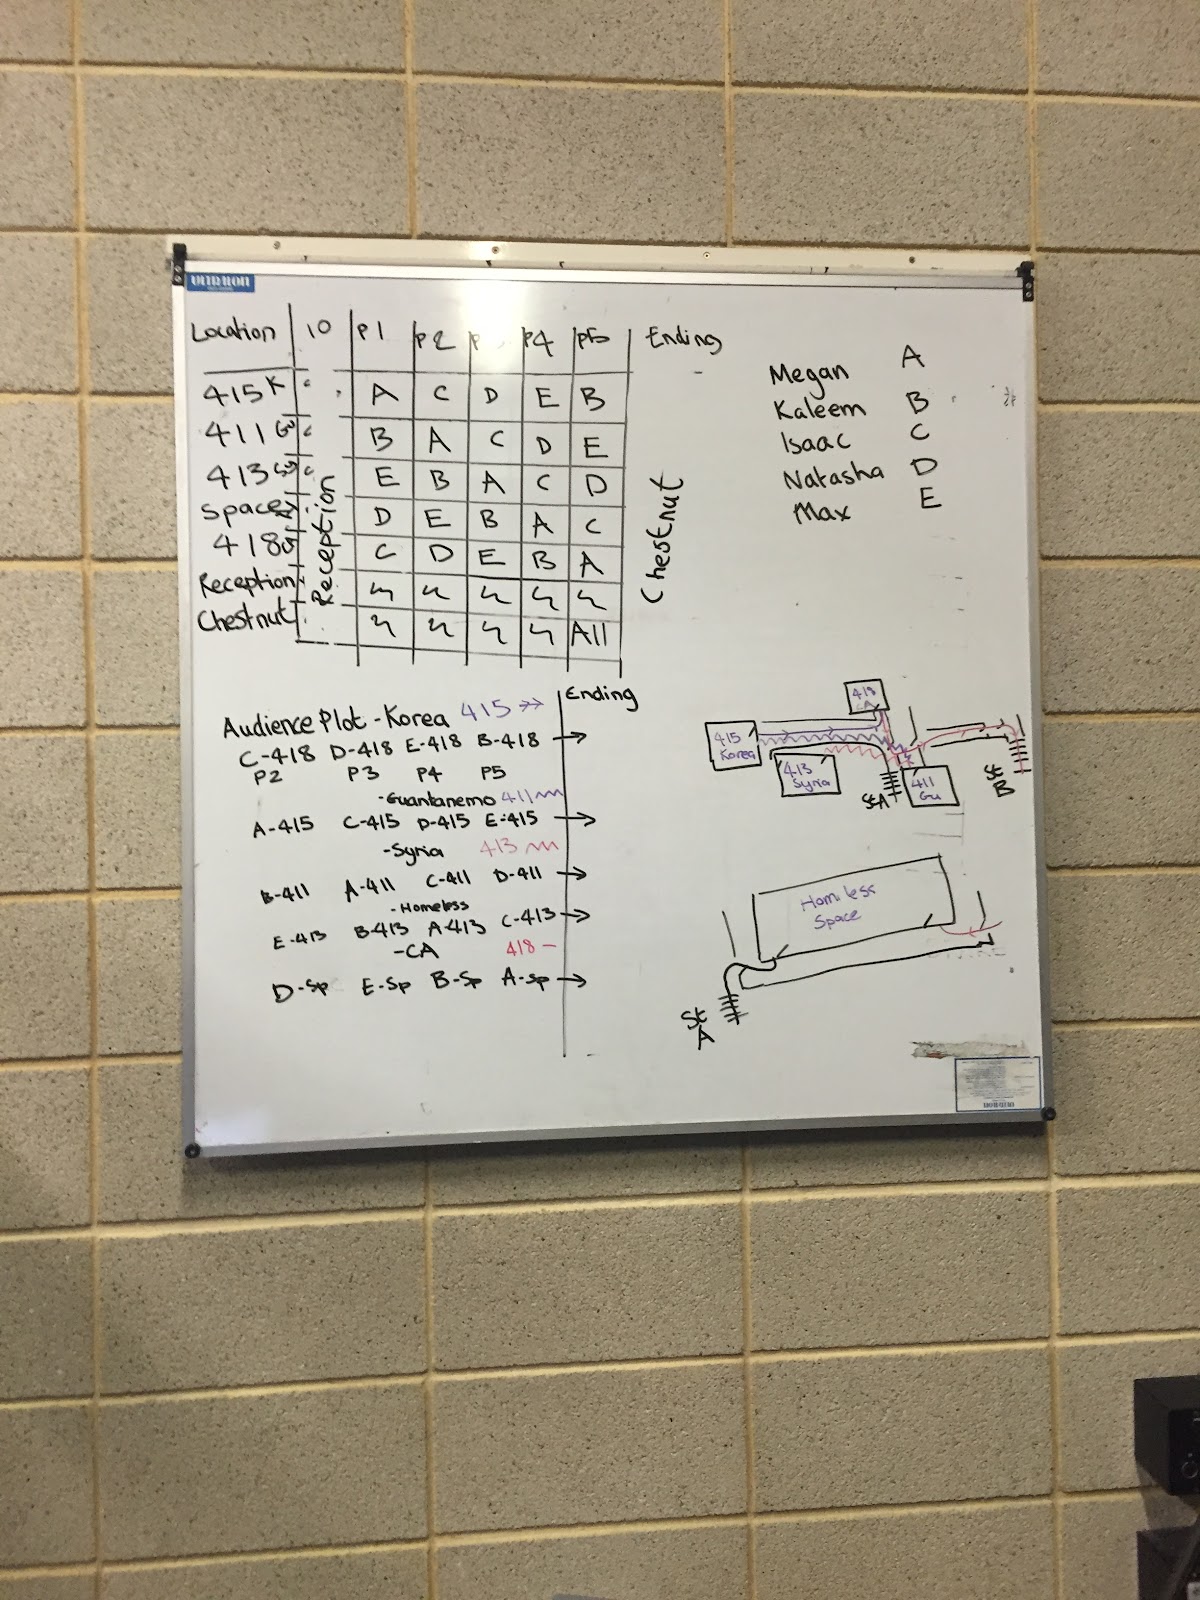 Location 10 P1 P2 P P4 P5 Ending
415K A C D E B
411 B A C D E
413 E B A C D
Space D E B A C
418 C D E B A
Reception
Chestnut All
Reception
Chestnut
Megan A
Kaleem B
Isaac C
Natasha D
Max E
Audience Plot - Korea 415 Ending
C-418 D-418 E-418 B-418
P2 P3 P4 P5
- Guantanemo 411
A-415 C-415 D-415 E-415
- Syria 413
B-411 A-411 C-411 D-411
- Homeless
E-413 B-413 A-413 C-413
- CA 418 -
D-Sp E-Sp B-Sp A-Sp
418
CA
415
Korea
413
Syria
St A
411
Gu
St
B
Homless
Space
St
A